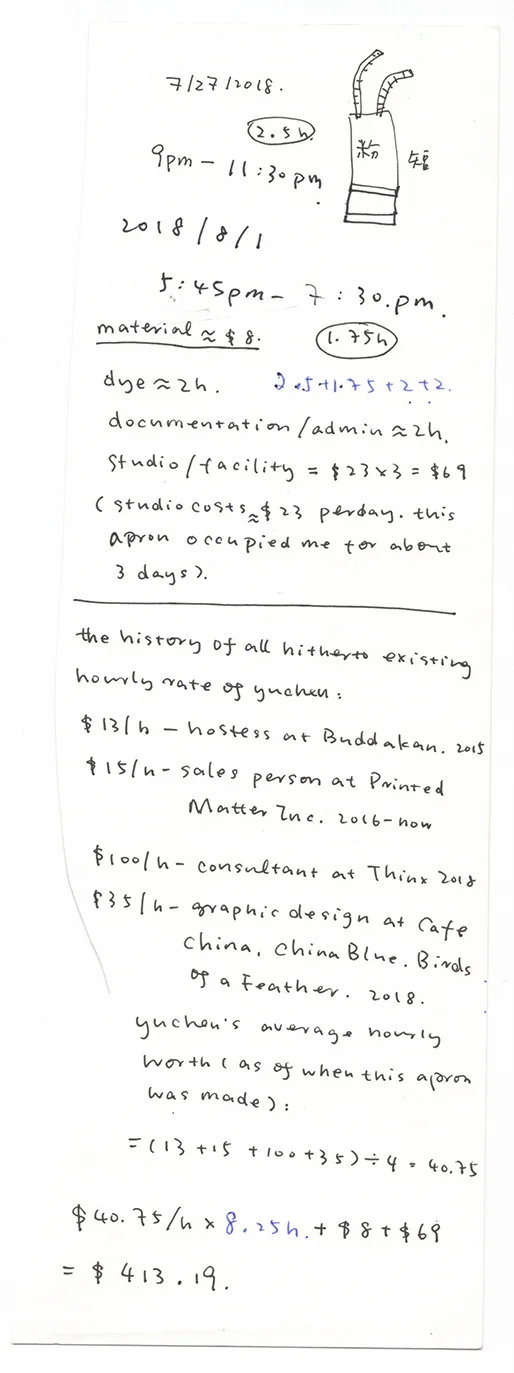 7/27/2018.
2.5h
9pm - 11:30pm.
粉
短
2018/8/1
5:45pm - 7:30.pm.
material ≈ $8.
1.75h
dye ≈ 2h.
2.5+1.75+2+2.
documentation/admin ≈ 2h.
Studio/facility = $23×3 = $69
(studio costs ≈ $23 perday. this
apron occupied me for about
3 days).
the history of all hitherto existing
hourly rate of yuchen:
$13/h - hostess at Buddakan. 2015
$15/h - sales person at Printed
Matter Inc. 2016-now
$100/h - consultant at Thinx 2018
$35/h - graphic design at Cafe
China, China Blue. Birds
of a Feather. 2018.
yuchen's average hourly
worth (as of when this apron
was made):
=(13+15+100+35)÷4 = 40.75
$40.75/h × 8.25h. + $8 + $69
= $413.19.